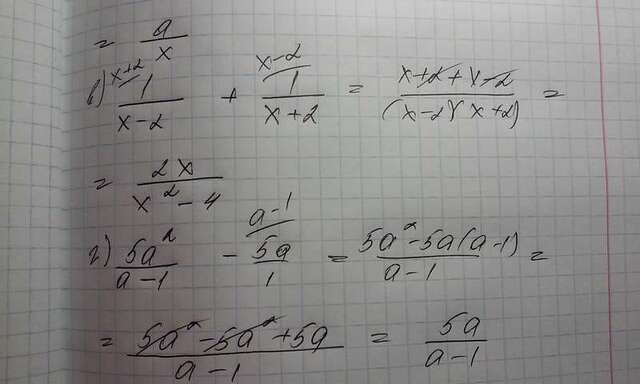 = a/x
в) 1/(x-2) (x+2 + 1/(x+2) (x-2 = (x+2+x-2)/((x-2)(x+2)) =
= 2x/(x²-4)
г) 5a²/(a-1) - 5a/1 (a-1 = (5a²-5a(a-1))/(a-1) =
= (5a²-5a²+5a)/(a-1) = 5a/(a-1)